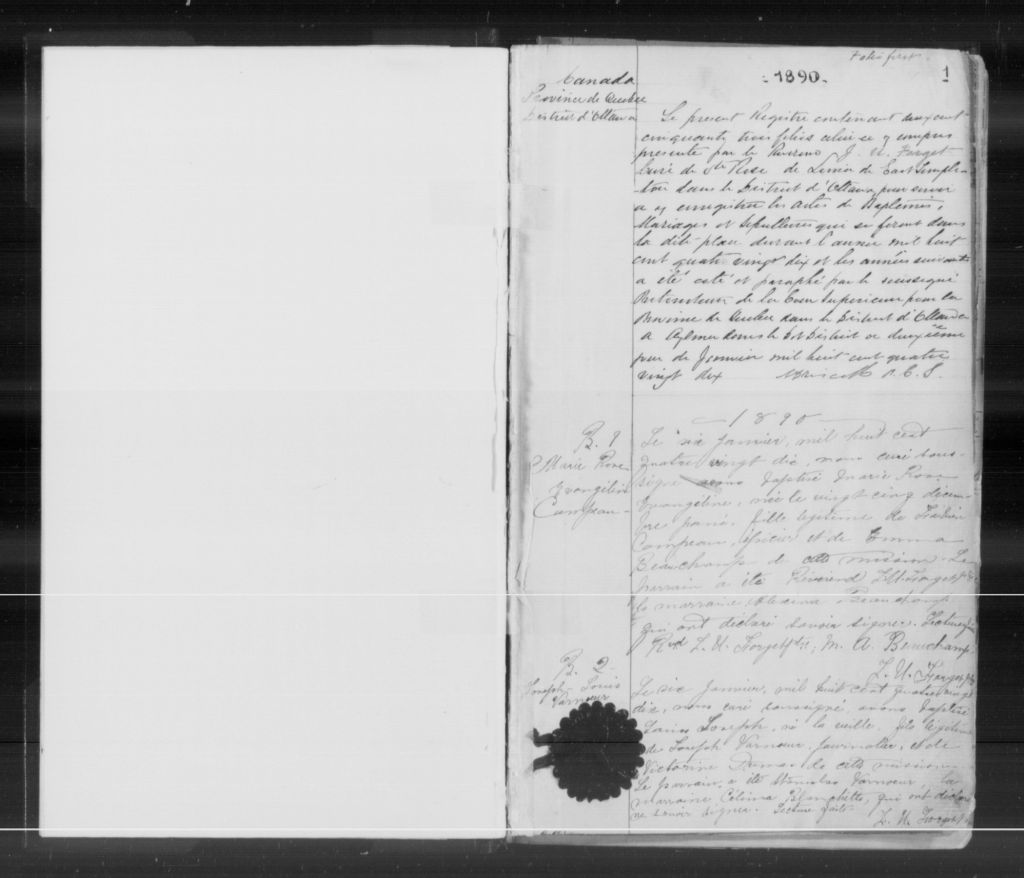 Folio first.
1
- 1890 -
Canada
Province de Quebec
District d'Ottawa
Le present Registre contenant deux cent
cinquante trois folios celui ci y compris
presenté par le Reverend J. U. Forget
Curé de Ste Rose de Lima de East Temple-
ton dans le District d'Ottawa pour servir
a y enregistrer les actes de Baptemes,
Mariages et Sepultures qui se feront dans
la dite place durant l'année mil huit
cent quatre vingt dix et les années suivantes
a été coté et paraphé par le soussigné
Protonotaire de la Cour Superieure pour la
Province de Quebec dans le District d'Ottawa
a Aylmer dans le dit District ce deuxième
jour de Janvier mil huit cent quatre
vingt dix P. C. S.
1890
B. 1
Marie Rose
Evangéline
Campeau
Le six Janvier, mil huit cent
quatre vingt dix, nous curé sous-
signé avons baptisé Marie Rose
Evangéline, née le vingt cinq décem-
bre passé, fille légitime de
Campeau, épicier et de Emma
Beauchamp de cette mission. Le
parrain a été Révérend Z. U. Forget Ptre
la marraine Beauchamp
qui ont déclaré savoir signer. Lecture faite
Rvd Z. U. Forget Ptre, M. A. Beauchamp
Z. U. Forget Ptre
B. 2
Joseph Louis
Varneur
Le six Janvier, mil huit cent quatre vingt
dix, nous curé soussigné avons baptisé
Louis Joseph, né la veille, fils légitime
de Joseph Varneur, journalier, et de
Victorine Dumas de cette mission.
Le parrain a été Stanislas Varneur, la
marraine Célina Blanchette, qui ont déclaré
ne savoir signer. Lecture faite
Z. U. Forget Ptre